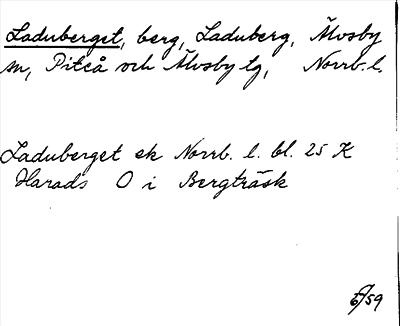 Laduberget, berg, Laduberg, Älvsby
sn, Piteå och Älvsby tg, Norrb. l.
Laduberget ek Norrb. l. bl. 25 K
Harads O i Bergträsk
6/59